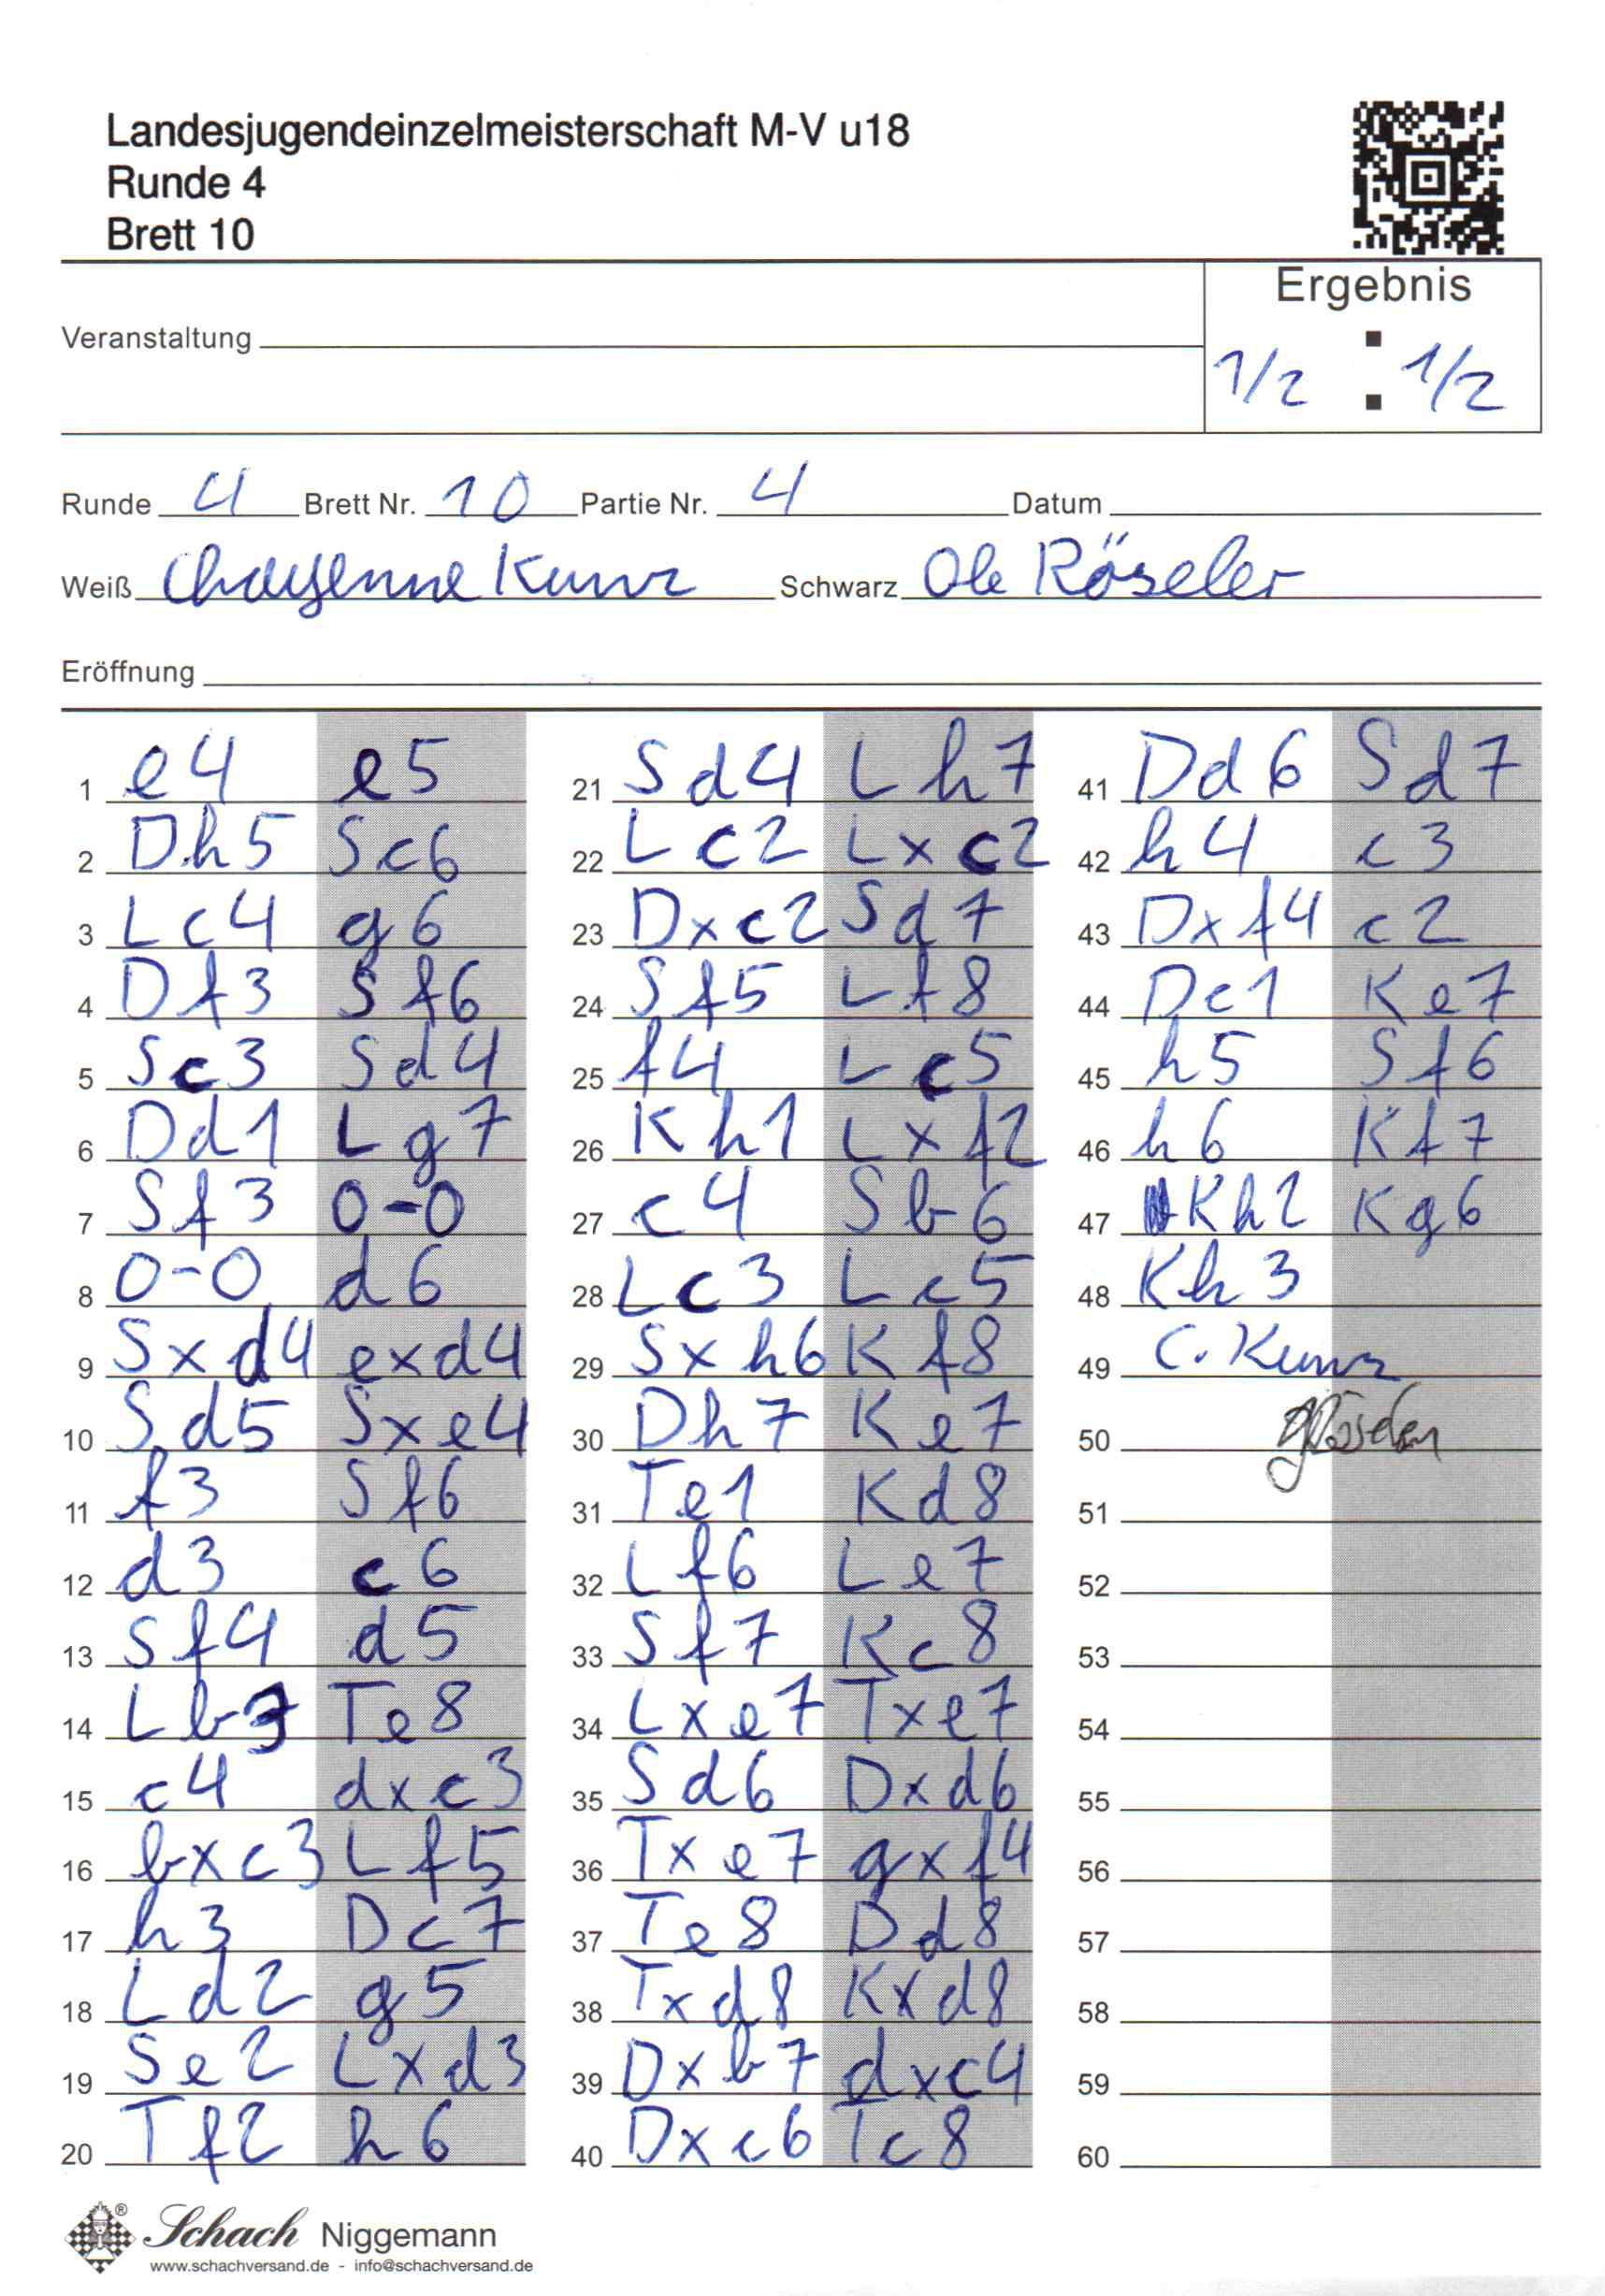 Landesjugendeinzelmeisterschaft M-V u18
Runde 4
Brett 10
Ergebnis
Veranstaltung
1/2 : 1/2
Runde 4 Brett Nr. 10 Partie Nr. 4 Datum
Weiß Chayenne Kunz Schwarz Ole Röseler
Eröffnung
1 e4 e5
2 Dh5 Sc6
3 Lc4 g6
4 Df3 Sf6
5 Sc3 Sd4
6 Dd1 Lg7
7 Sf3 0-0
8 0-0 d6
9 Sxd4 exd4
10 Sd5 Sxe4
11 f3 Sf6
12 d3 c6
13 Sf4 d5
14 Lb3 Te8
15 c4 dxc3
16 bxc3 Lf5
17 h3 Dc7
18 Ld2 g5
19 Se2 Lxd3
20 Tf2 h6
21 Sd4 Lh7
22 Lc2 Lxc2
23 Dxc2 Sd7
24 Sf5 Lf8
25 f4 Lc5
26 Kh1 Lxf2
27 c4 Sb6
28 Lc3 Lc5
29 Sxh6 Kf8
30 Dh7 Ke7
31 Te1 Kd8
32 Lf6 Le7
33 Sf7 Kc8
34 Lxe7 Txe7
35 Sd6 Dxd6
36 Txe7 gxf4
37 Te8 Dd8
38 Txd8 Kxd8
39 Dxb7 dxc4
40 Dxc6 Tc8
41 Dd6 Sd7
42 h4 c3
43 Dxf4 c2
44 Dc1 Ke7
45 h5 Sf6
46 h6 Kf7
47 Kh2 Kg6
48 Kh3
49 C. Kunz
50
51
52
53
54
55
56
57
58
59
60
Schach Niggemann
www.schachversand.de - info@schachversand.de